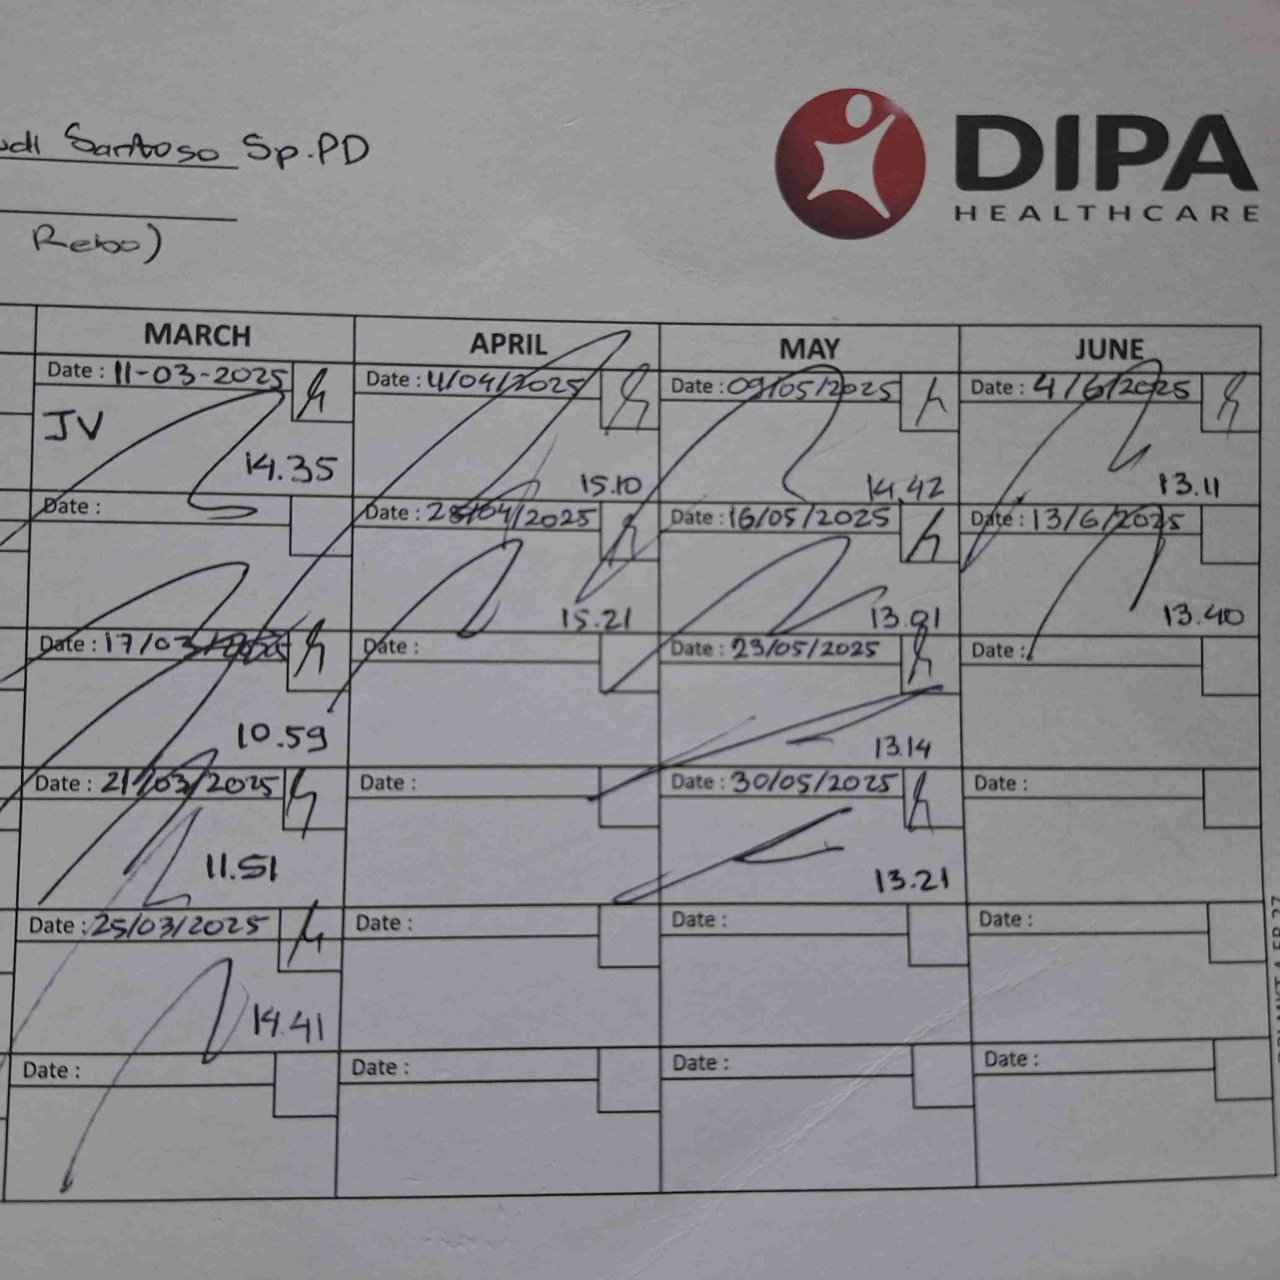 Santoso Sp.PD
DIPA
HEALTHCARE
Rebo)
MARCH APRIL MAY JUNE
Date : 11-03-2025 Date : 4/04/2025 Date : 09/05/2025 Date : 4/6/2025
JV
14.35 15.10 14.42 13.11
Date : Date : 28/04/2025 Date : 16/05/2025 Date : 13/6/2025
15.21 13.01 13.40
Date : 17/03/2025 Date : Date : 23/05/2025 Date :
10.59 13.14
Date : 21/03/2025 Date : Date : 30/05/2025 Date :
11.51 13.21
Date : 25/03/2025 Date : Date : Date :
14.41
Date : Date : Date : Date :